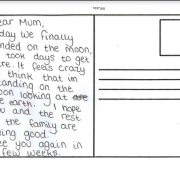 ear Mum,
day we finally
nded on the moon,
took days to get
re. It feels crazy
think that im
tanding on the
oon looking at
e earth. I hope
u and the rest
the family are
ing good.
ee you again in
few weeks.